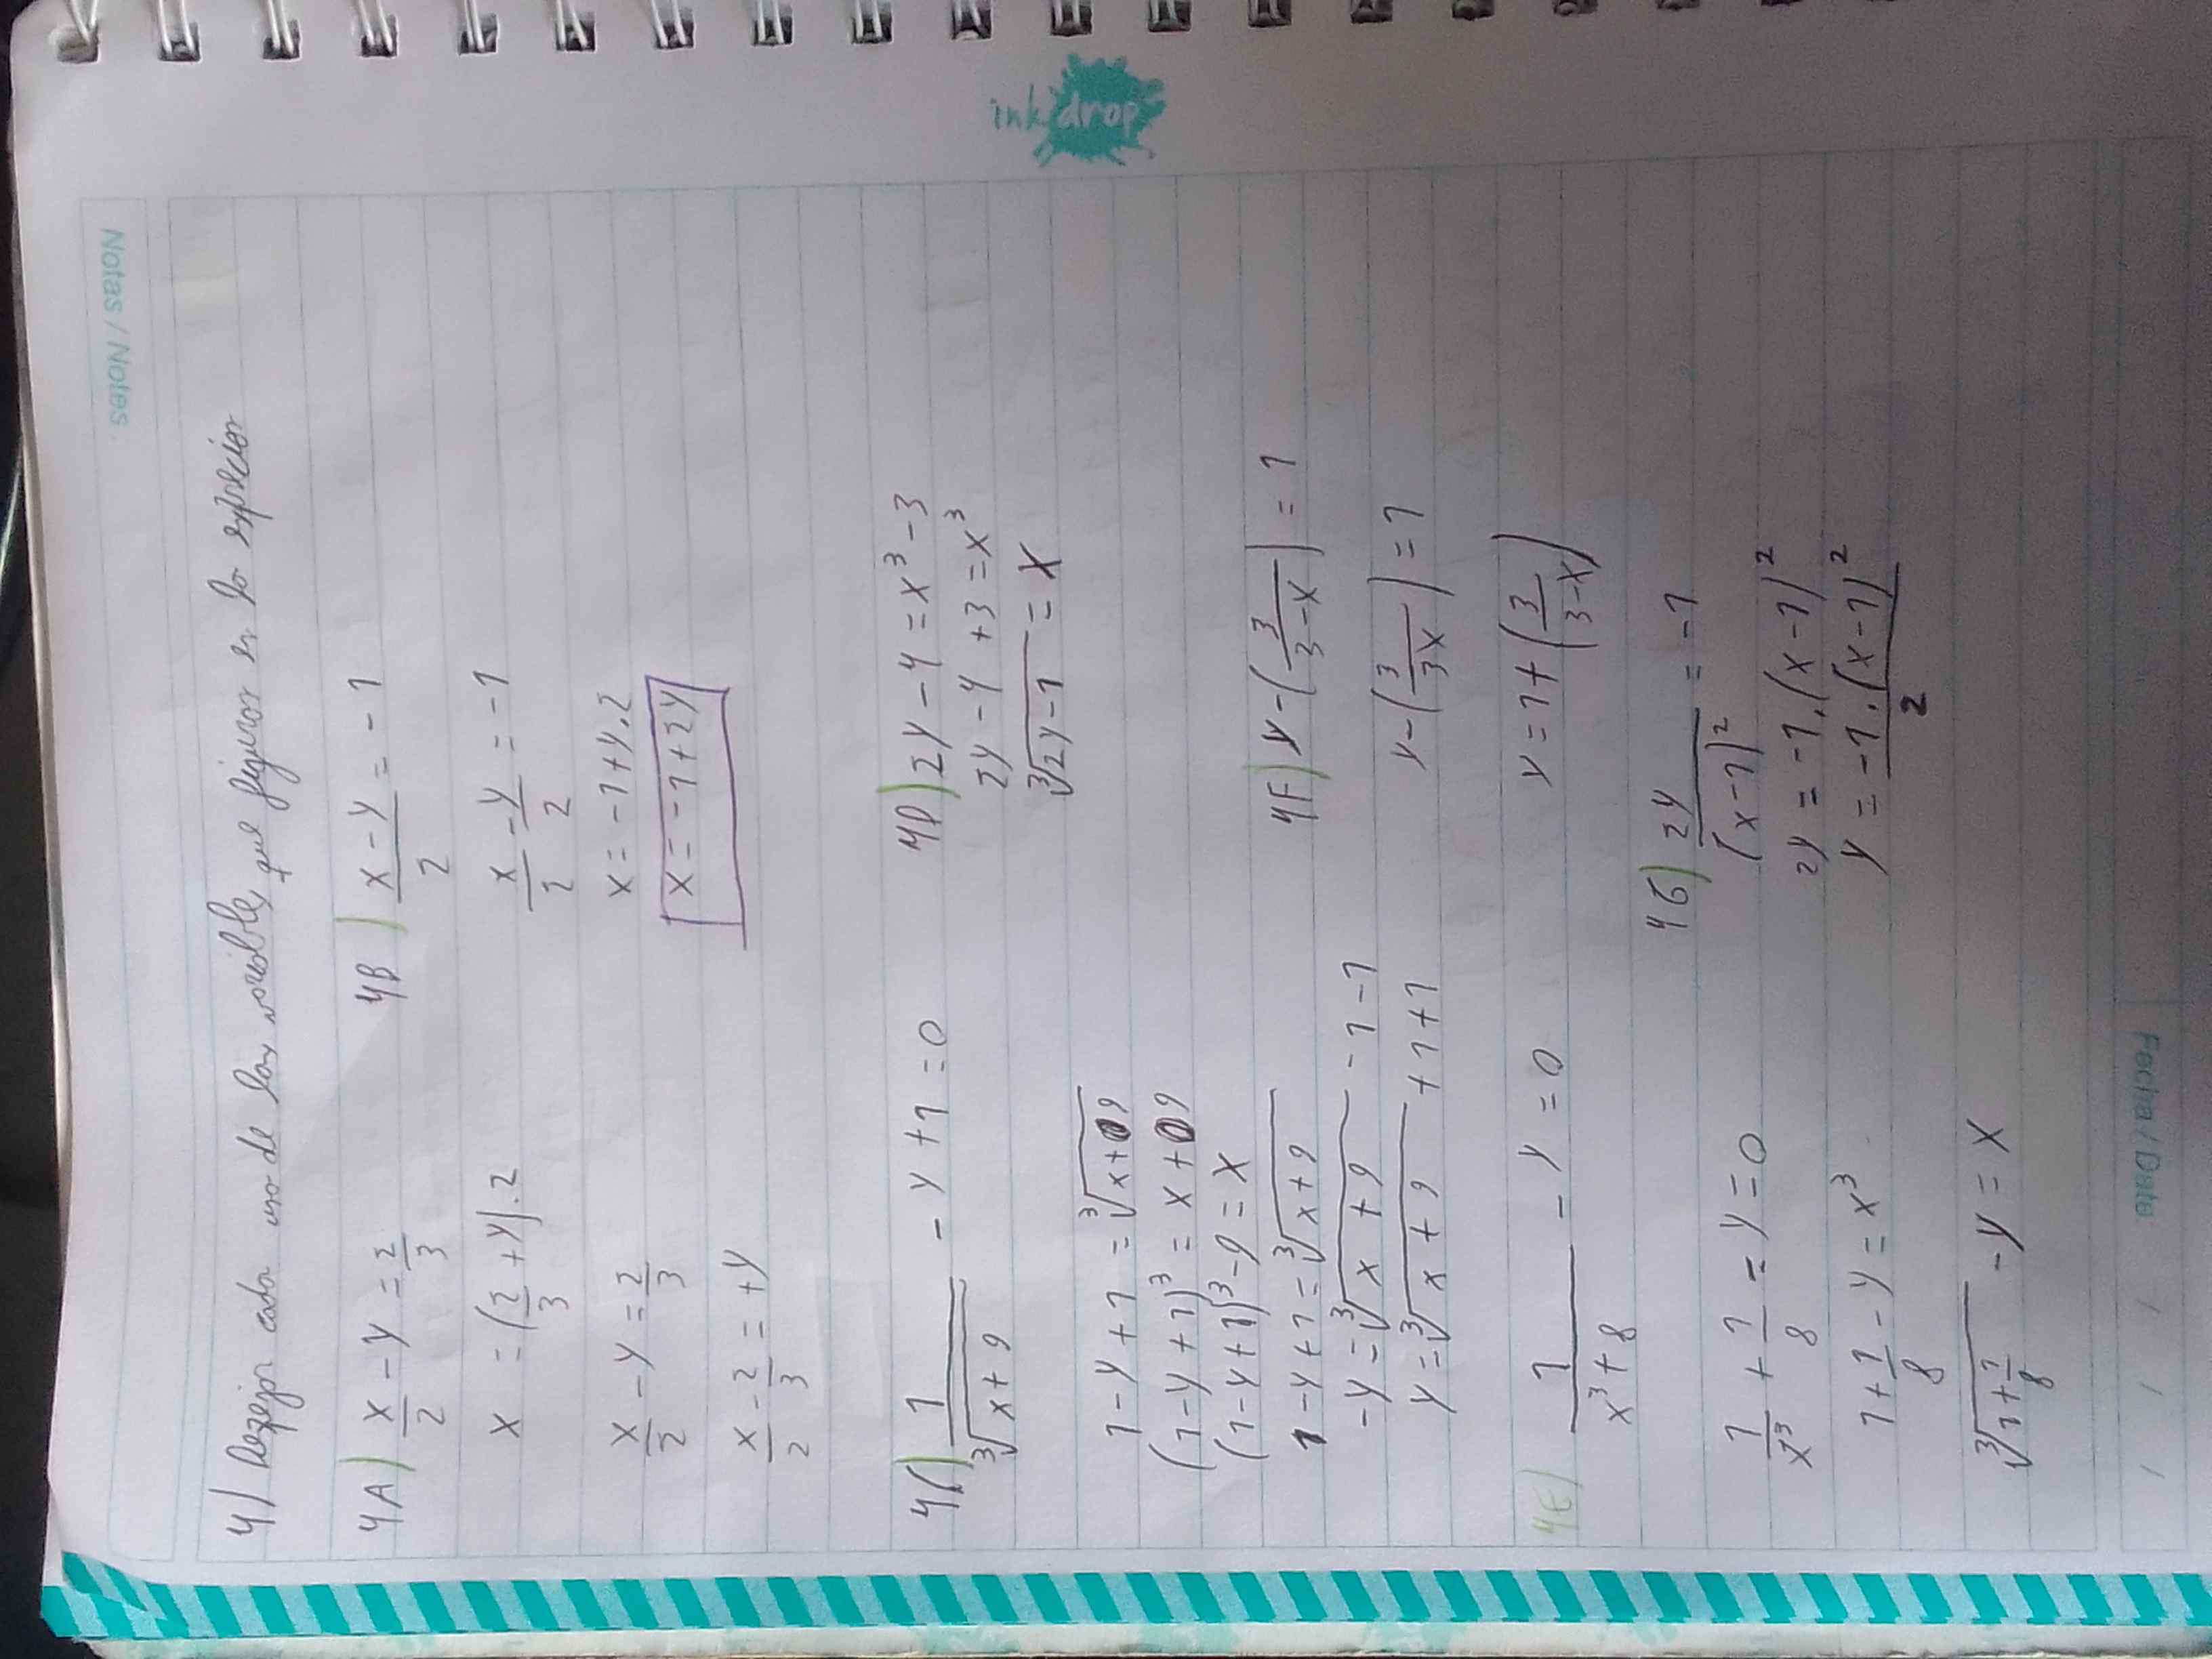 Notas / Notes.
ink drop
4) Despejar cada uno de las variables que figuran en la expresión
4A) x/2 - y = 2/3
x = (2/3 + y).2
x/2 - y = 2/3
x/2 - 2/3 = +y
4B) (x - y)/2 = -1
x/2 - y/2 = -1
x = -1 + y.2
x = -1 + 2y
4C) 1/∛(x+9) - y + 1 = 0
1 - y + 1 = ∛(x+9)
(1 - y + 1)³ = x + 9
(1 - y + 1)³ - 9 = x
1 - y + 1 = ∛(x+9)
-y = ∛(x+9) - 1 - 1
y = ∛(x+9) + 1 + 1
4D) 2y - 4 = x³ - 3
2y - 4 + 3 = x³
∛(2y-1) = x
4E) 1/(x³+8) - y = 0
1/x³ + 1/8 = y = 0
1 + 1/8 - y = x³
∛(1+1/8) - y = x
4F) y - (3/(3-x)) = 1
y - (3/3x) = 1
y = 1 + (3/(3-x))
4G) 2y/(x-1)² = -1
2y = -1.(x-1)²
y = -1.(x-1)²/2
Fecha / Date: / / /